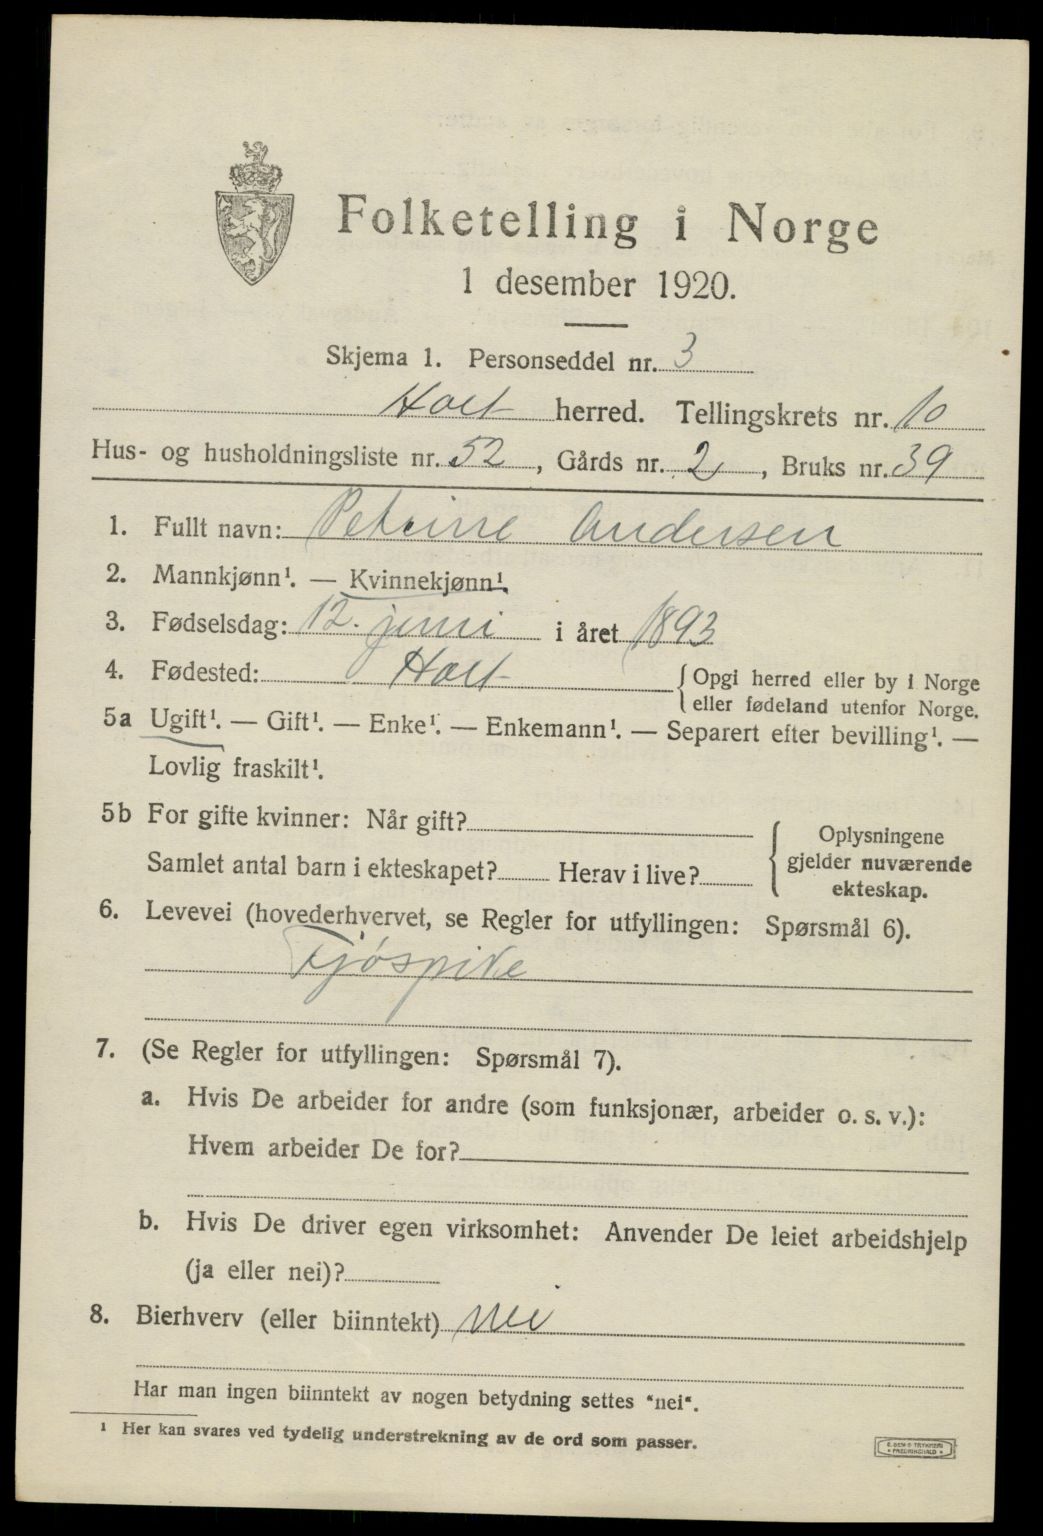 Folketelling i Norge
1 desember 1920.
Skjema 1. Personseddel nr. 3
Holt herred. Tellingskrets nr. 10
Hus- og husholdningsliste nr. 52, Gårds nr. 2, Bruks nr. 39
1. Fullt navn: Petrine Andersen
2. Mannkjønn¹. — Kvinnekjønn¹.
3. Fødselsdag: 12. juni i året 1893
4. Fødested: Holt {Opgi herred eller by i Norge
eller fødeland utenfor Norge.
5a Ugift¹. — Gift¹. — Enke¹. — Enkemann¹. — Separert efter bevilling¹. —
Lovlig fraskilt¹.
5b For gifte kvinner: Når gift?
Samlet antal barn i ekteskapet? Herav i live?
Oplysningene
gjelder nuværende
ekteskap.
6. Levevei (hovederhvervet, se Regler for utfyllingen: Spørsmål 6).
Fjøspike
7. (Se Regler for utfyllingen: Spørsmål 7).
a. Hvis De arbeider for andre (som funksjonær, arbeider o. s. v.):
Hvem arbeider De for?
b. Hvis De driver egen virksomhet: Anvender De leiet arbeidshjelp
(ja eller nei)?
8. Bierhverv (eller biinntekt) nei
Har man ingen biinntekt av nogen betydning settes "nei".
¹ Her kan svares ved tydelig understrekning av de ord som passer.